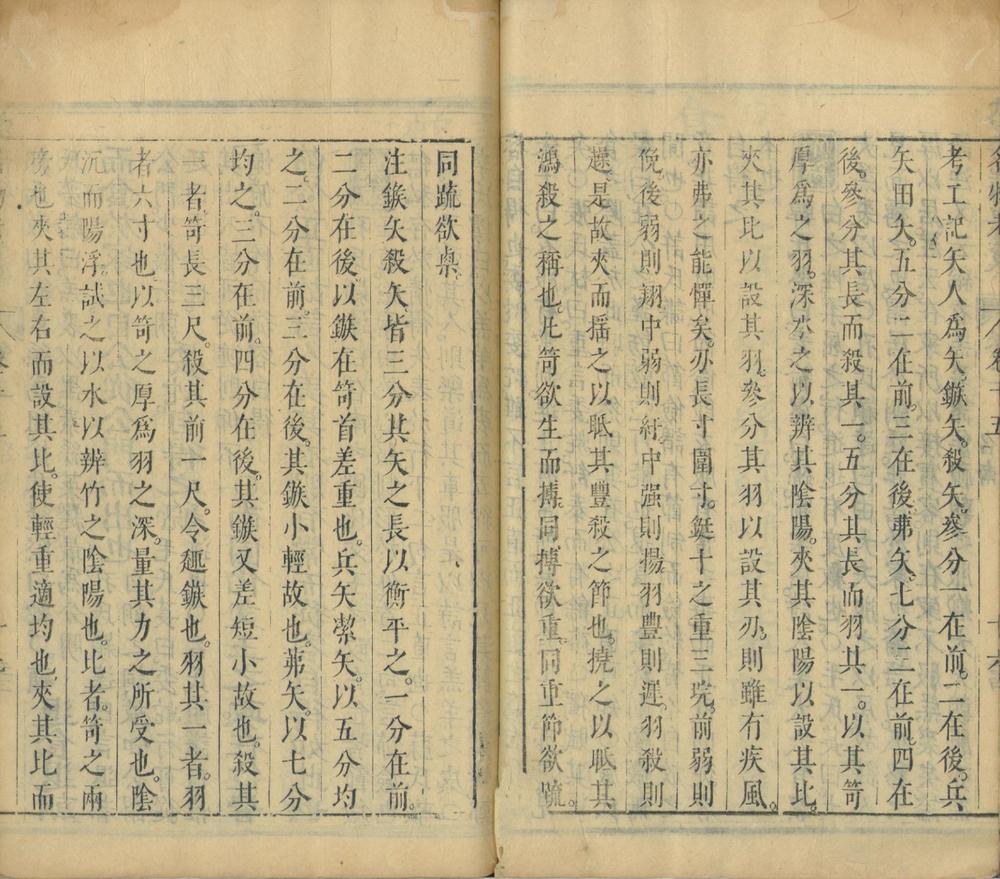 考工記矢人爲矢鏃矢殺矢參分一在前二在後兵
矢田矢五分二在前三在後茀矢七分三在前四在
後參分其長而殺其一五分其長而羽其一以其笴
厚爲之羽深水之以辨其陰陽夾其陰陽以設其比
夾其比以設其羽參分其羽以設其刃則雖有疾風
亦弗之能憚矣刃長寸圍寸鋌十之重三垸前弱則
俛後弱則翔中弱則紆中强則揚羽豐則遲羽殺則
趮是故夾而揺之以眡其豐殺之節也撓之以眡其
鴻殺之稱也凡笴欲生而摶同摶欲重同重節欲疏
同疏欲㮚
注鏃矢殺矢皆三分其矢之長以衡平之一分在前
二分在後以鏃在笴首差重也兵矢絜矢以五分均
之二分在前三分在後其鏃小輕故也茀矢以七分
均之三分在前四分在後其鏃又差短小故也殺其
一者笴長三尺殺其前一尺令趣鏃也羽其一者羽
者六寸也以笴之厚爲羽之深量其力之所受也陰
沉而陽浮試之以水以辨竹之陰陽也比者笴之兩
旁也夾其左右而設其比使輕重適均也夾其比而